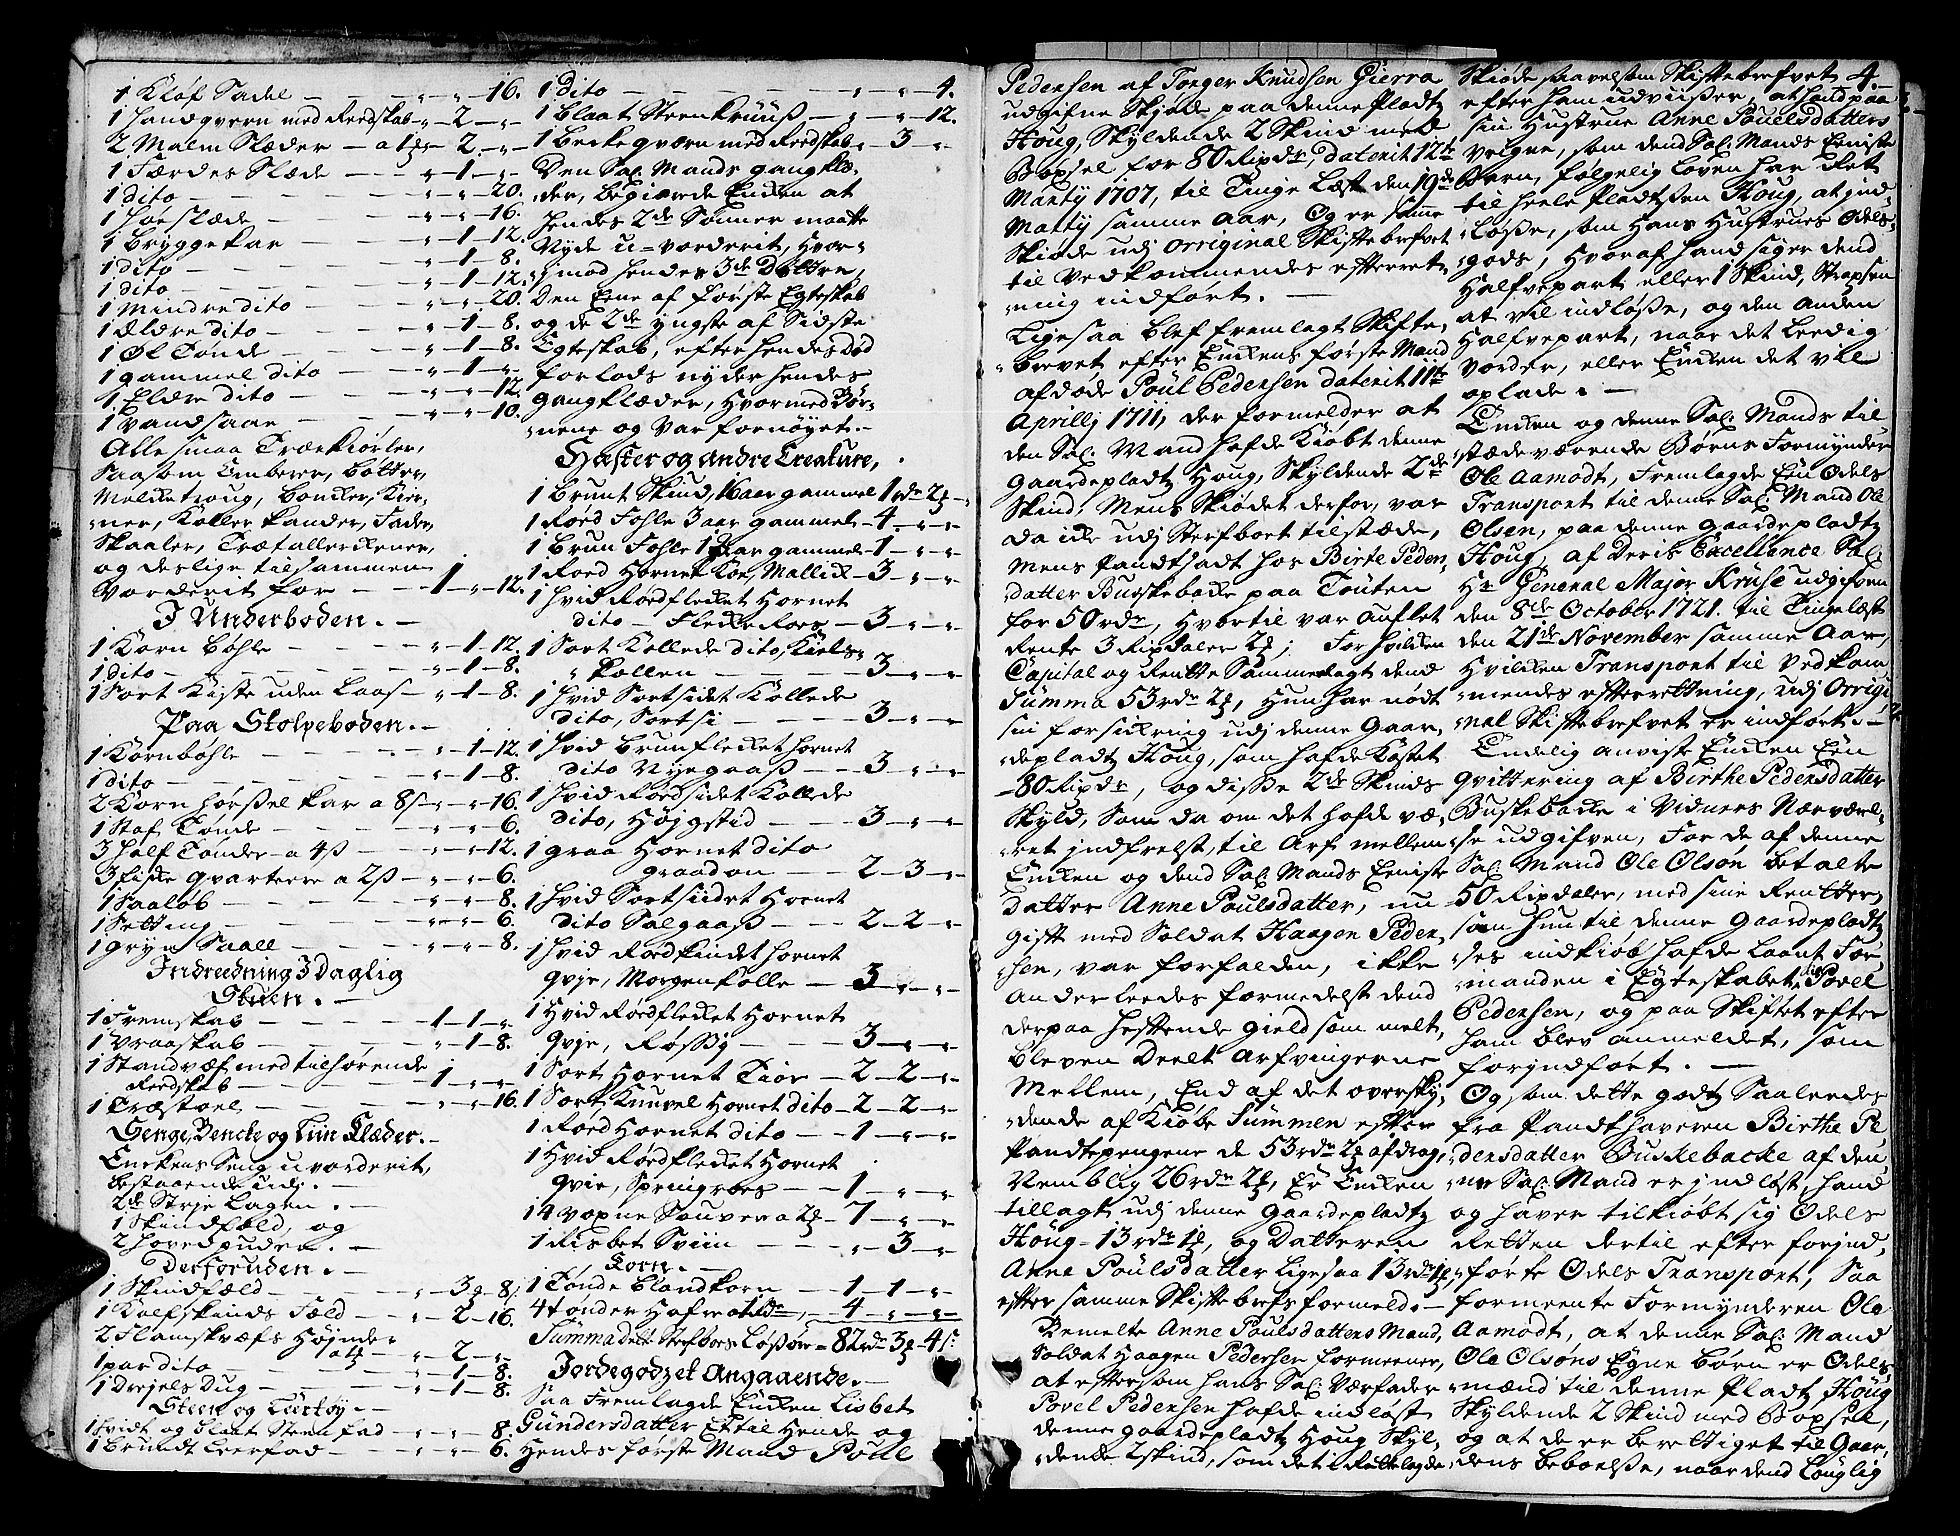 1 Kløf Sadel — — — „ — „ — 16.
1 Handqvern med Reedskab „ — 2 — „
2 Malm Slæder — a 1 ort „ 2. „
1 Færdes Slæde — — „ — 1 — „
1 dito — — — „ — „ — 20.
1 Høe slæde — — — „ — „ — 16.
1 Bryggekar — — — „ — 1 — 12.
1 dito — — — „ — 1 — 8.
1 dito — — — „ — 1 — 12.
1 Mindre dito — — „ — „ — 20.
1 Ældre dito — — — „ — 1 — 8.
1 Øl Tønde — — — „ — 1 — 8.
1 gammel dito — — „ — 1 — „
1 Eldre dito — — — „ — „ — 12.
1 Vandsaae — — — „ — „ — 10.
Alle smaa Trækiørler,
Saasom Emberer, Bøtter,
Melketroug, bancker, Kier-
ner, Køller kander, Fader,
Skaaler, Træ tallerckener,
og deslige tilsammen
Vorderit for — — 1 — „ — 12.
I Underboden. —
1 Korn Bøhle — — — „ — 1 — 12.
1 dito — — — „ — 1 — 8.
1 Sort Kiste uden Laas — „ — 1 — 8.
Paa Stolpeboden. —
1 Kornbøhle — — — „ — 1 — 12.
1 dito — — — „ — 1 — 8.
2 Korn hørssel kar a 8 s — „ — „ — 16.
1 Staf Tønde — — — „ — „ — 6.
3 half Tønder a 4 ß — „ — „ — 12.
3 fiske qvarteere a 2 ß — „ — „ — 6.
1 Saaløb — — — „ — „ — 8.
1 Setting — — — „ — „ — 6.
1 gryn Saall — — — „ — „ — 8.
Indreedning J Daglig
Stuen. —
1 Fremskab — — — 1 — 1 — „
1 Vraaskab — — — „ — 1 — 8.
1 Standvæf med tilhørende
Reedskab — — — 1 — „ — „
1 Træstoel — — — „ — „ — 16.
Senge, Bencke og Liin Klæder. —
Enckens Seng uvorderit,
bestaaende udj. —
2de Strje Lagen. —
1 Skindfæld, og
2 hovedpuder. —
Desforuden. —
1 Skindfæld — — „ — 3 — 8.
1 Kalfskinds Fæld — — „ — 2 — 16.
2 Flamskvæfs Høinder
a 1 ort — „ — 2 — „
1 par dito — — — „ — 1 — 8.
1 Drejels Dug — — — „ — 1 — 8.
Steen og Leertøy. —
1 hvidt og blaat Steen fad — „ — „ — 8.
1 Brundt Leerfad — — „ — „ — 6.
1 Dito — — — — „ — „ — 4.
1 Blaat Steen Kruuß — „ — „ — 12.
1 Becke qværn med Reedskab „ — 3 „
Den Sal. Mands gangklæ-
der, begiærde Encken at
hendes 2de Sønner maatte
Nyde u-vorderit, Hvor-
imod hendes 3de Døttre,
Den Eene af første Egteskab
og de 2de yngste af Sidste
Egteskab, efter hendes Død
forlods nyder hendes
gangklæder, Hvormed Bør-
nene og Var fornøyet. —
Hæster og andre Creature,
1 brunt Skiud, 16 aar gammel 1 rdr 2 ort „
1 Rød Fohle 3 aar gammel — 4 — „ — „
1 brun Fohle 1 Aar gammel — 1 — „ — „
1 Rød Hornet Koe, Mallick — 3 — „ — „
1 hvid Rødflecket Hornet
dito — Fleckeroes — 3 — „ — „
1 Sort Kollede dito, Kiels-
kollen — — — 3 — „ — „
1 hvid Sortsidet Kollede
dito, Sortsi — — — 3 — „ — „
1 hvid Brunflecket hornet
dito Nyegaaß — — 3 — „ — „
1 hvid Rødsidet Kollede
dito, Høigstid — — 3 — „ — „
1 graa Hornet dito
graadon — — 2 — 3 — „
1 hvid Sortsidet Hornet
dito Sølgaaß — — 2 — 2 — „
1 hvid Rødkindet hornet
Qvje, Morgenkolle — 3 — „ — „
1 Hvid Rødflecket Hornet
Qvje, Røssig — — 3 — „ — „
1 Sort Hornet Tior — 2 — 2 — „
1 Sort Knuvel Hornet dito — 2 — 2 — „
1 Rød Hornet dito — — 1 — „ — „
1 Hvid Rødflecket Hornet
Qvie, Springroes — — 1 — „ — „
14 Voxne Sauver a 2 ort — 7 — „ — „
1 Risbet Sviin — — „ — 3 — „
Korn. —
1 Tønde Blandkorn — — 1 — 1 — „
4 tønder Hafre a 1 rdr — 4 — „ — „
Summa dette Sterfboes Løsøre = 82 rdr 3 ort 4 s:
Jordegodzet Angaaende. —
Saa Fremlagde Encken Lisbet
Gundersdatter Et til Hende og
Hendes første Mand Poul
Pedersen af Torger Knudsen Gierra
udgifne Skjøde paa denne Pladtz
Houg, Skyldende 2 Skind med
Bøxsel for 80 Rixdr, daterit 12te
Marty 1707, til Tinge Læst den 19de
Marty samme Aar, Og er samme
Skiøde udj Orriginal Skiftebrefvet
til Vedkommendes efterret-
ning indført. —
Ligesaa blef fremlagt Skifte-
brevet efter Enckens første Mand
afdøde Poul Pedersen daterit 11te
Aprilly 1711, der formelder at
den Sal. Mand hafde Kiøbt denne
Gaardepladtz Houg, Skyldende 2de
Skind, Mens Skiødet derfor, var
da icke udj Sterfboet tilstæde,
mens Pandtsadt hos Birte Peders-
datter Buskebacke paa Touten
for 50 rdr, Hvortil var Aufket
Rente 3 Rixdaler 2 ort; For hvilcken
Capital og Rentte Sammenlagt dend
Summa 53 rdr 2 ort, Hun har nødt
sin forsickring udj denne Gaar-
depladtz Houg, som hafde Kostet
80 Rixdr, og disse 2de Skinds
Skyld, Som da om det hafde væ-
ret jndfrelst, til Arf mellem
Encken og dend Sal. Mands Eeniste
Datter Anne Poulsdatter, nu
Gift med Soldat Haagen Peder-
sen, var forfalden, ikke
Anderleedes formedelst dend
derpaa heftende Gield som melt,
bleven Deelt Arfvingerne
Mellem, End af det oversky-
dende af Kiøbe Summen efter
Pandtepengene de 53 rdr 2 ort afdrag,
Nemblig 26 rdr 2 ort, Er Encken
tillagt udj denne Gaardepladtz
Houg — 13 rdr 1 ort, og Datteren
Anne Poulsdatter Ligesaa 13 rdr 1 ort,
efter samme Skifte brefs formeld. —
Bemelte Anne Poulsdatters Mand,
Soldat Haagen Pedersen formeener,
at eftersom hans Sal. Værfader
Povel Pedersen hafde indløst
denne Gaardepladtz Houg Skyl-
dende 2 skind, som det i Rette lagde
Skiøde saavelsom Skiftebrefvet 4.
efter ham udviiser, at hand paa
sin Hustrue Anne Pouelsdatters
Veigne, som dend Sal. Mands Eeniste
Barn, følgelig Loven har Ret
til heele Pladtsen Houg, at ind-
løsse, som Hans Hustrues Odels-
gods, Hvoraf hand siger dend
Halfvepart eller 1 Skind, Strapsen
at vil indløsse, og den anden
Halfvepart, naar det Leedig
vorder, eller Encken det vil
oplade. —
Encken og denne Sal. Mands til
stæde værende Børns Formynder
Ole Aamodt, Fremlagde Een Odels
Transport til denne Sal. Mand Ole
Olsen, paa denne Gaardepladtz
Houg, af Deris Excellence Sal.
Hr. General Major Kruse udgifven
den 8de October 1721. til Tinge læst
den 21de November samme Aar,
Hvilcken Transport til Vedkom-
mendes efterrettning, udj Orrigi-
nal Skiftebrefvet er indført. —
Endelig anviste Encken Een
Qvittering af Birthe Pedersdatter
Buskebacke i Vidners Nærværel-
se udgifven, For de af denne
Sal. Mand Ole Olsøn betalte
50 Rixdaler, med sine Rentter,
som hun til denne Gaardepladtz-
ses indkiøb hafde Laant For-
manden i Egteskabet, Povel
Pedersen, og paa Skiftet efter
ham blev anmeldet, som
forindført. —
Og som dette godtz Saaleedes
fra Pandthaveren Birthe Pe-
dersdatter Buskebacke af den-
ne Sal. Mand er jndløst, hand
og haver tilkiøbt sig Odels
Retten dertil efter forjnd-
førte Odels Transport, Saa
formeente Formynderen Ole
Aamodt, at denne Sal. Mand
Ole Olsøns Egne børn er Odels-
mænd til denne Pladtz Houg
Skyldende 2 Skind med Bøxsel,
og at de er berettiget til Gaar-
dens beboelsse, naar dend Louglig